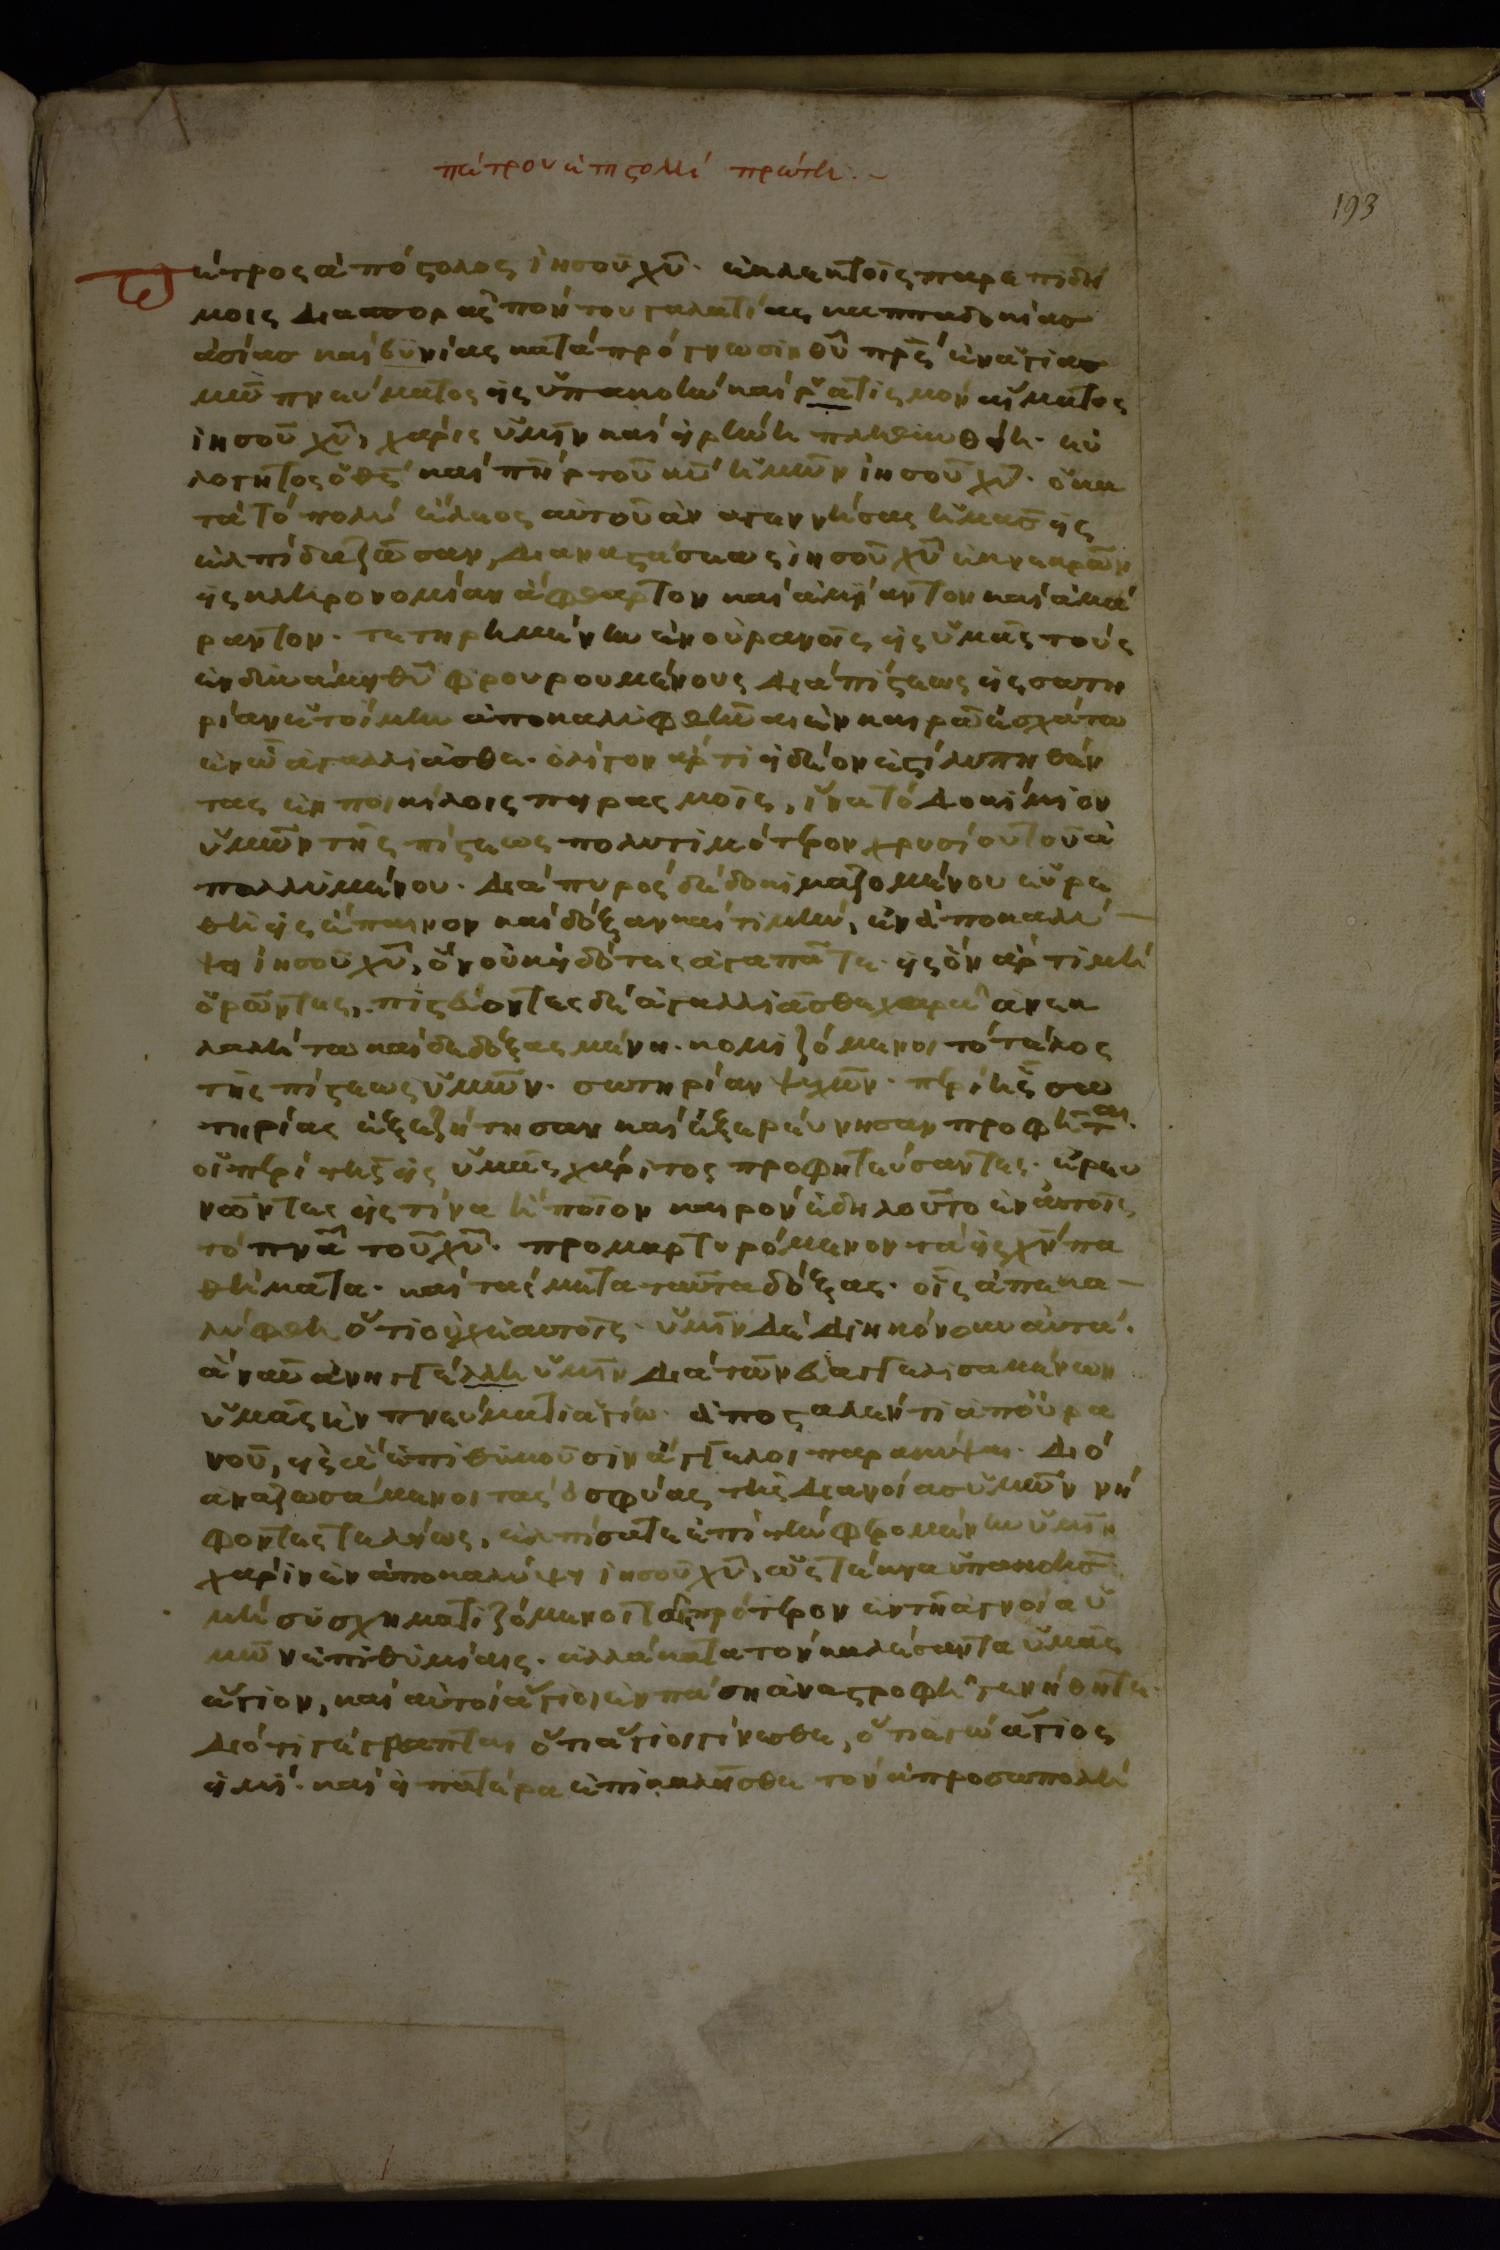 πέτρου ἐπιστολὴ πρώτη
193
Πέτρος ἀπόστολος ἰησοῦ χῦ· ἐκλεκτοῖς παρεπιδή
μοις διασπορᾶς πόντου γαλατίας καππαδοκίας
ἀσίας καὶ βϋνίας κατὰ πρόγνωσιν θῦ πρς ἐν ἁγιασ
μῶ πνεύματος εἰς ὑπακοὴν καὶ ῥατισμὸν αἵματος
ἰησοῦ χῦ, χάρις ὑμῖν καὶ εἰρήνη πληθυνθείη· εὐ
λογητὸς ὁ θς καὶ πηρ τοῦ κῦ ἡμῶν ἰησοῦ χῦ· ὁ κα
τὰ τὸ πολὺ ἔλεος αὐτοῦ ἀναγεννήσας ἡμᾶς εἰς
ἐλπίδα ζῶσαν, δι ἀναστάσεως ἰησοῦ χῦ ἐκ νεκρῶν
εἰς κληρονομίαν ἄφθαρτον καὶ ἀμίαντον καὶ ἀμά
ραντον· τετηρημένην ἐν οὐρανοῖς εἰς ὑμᾶς τοὺς
ἐν δυνάμει θῦ φρουρουμένους διὰ πίστεως εἰς σωτη
ρίαν ἑτοίμην ἀποκαλυφθῆναι ἐν καιρῶ ἐσχάτω
ἐν ὧ ἀγαλλιᾶσθε· ὀλίγον ἄρτι εἰ δέον ἐστὶ λυπηθέν
τας ἐν ποικίλοις πειρασμοῖς, ἵνα τὸ δοκίμιον
ὑμῶν τῆς πίστεως πολυτιμότερον χρυσίου τοῦ ἀ
πολλυμένου· διὰ πυρὸς δὲ δοκιμαζομένου εὑρε
θῆ εἰς ἔπαινον καὶ δόξαν καὶ τιμὴν, ἐν ἀποκαλύ
ψει ἰησοῦ χῦ, ὃν οὐκ εἰδότες ἀγαπᾶτε· εἰς ὃν ἄρτι μὴ
ὁρῶντες, πιστεύοντες δὲ ἀγαλλιᾶσθε χαρᾶ ἀνεκ
λαλήτω καὶ δεδοξασμένη· κομιζόμενοι τὸ τέλος
τῆς πίστεως ὑμῶν· σωτηρίαν ψυχῶν· περὶ ἧς σω
τηρίας ἐξεζήτησαν καὶ ἐξερεύνησαν προφῆται·
οἱ περὶ τῆς εἰς ὑμᾶς χάριτος προφητεύσαντες· ἐρευ
νῶντες εἰς τίνα ἢ ποῖον καιρὸν ἐδηλοῦτο ἐν αὐτοῖς
τὸ πνᾶ τοῦ χῦ· προμαρτυρόμενον τὰ εἰς χν πα
θήματα· καὶ τὰς μετα ταῦτα δόξας· οἷς ἀπεκα
λύφθη ὅτι οὐχ ἑαυτοῖς· ὑμῖν δὲ διηκόνουν αὐτά·
ἃ νῦν ἀνηγγέλλη ὑμῖν διὰ τῶν εὐαγγελισαμένων
ὑμᾶς ἐν πνεύματι ἁγίω ἀποσταλέντι ἀπ οὐρα
νοῦ, εἰς ἃ ἐπιθυμοῦσιν ἄγγελοι παρακύψαι· διὸ
ἀναζωσάμενοι τὰς ὀσφύας τῆς διανοίας ὑμῶν νή
φοντες τελείως, ἐλπίσατε ἐπὶ τὴν φερομένην ὑμῖν
χάριν ἐν ἀποκαλύψει ἰησοῦ χῦ, ὡς τέκνα ὑπακοῆς
μὴ συσχηματιζόμενοι ταῖς πρότερον ἐν τῆ ἀγνοία ὑ
μῶν ἐπιθυμίαις· ἀλλὰ κατα τὸν καλέσαντα ὑμᾶς
ἅγιον, καὶ αὐτοὶ ἅγιοι ἐν πάση ἀναστροφῆ γενήθητε·
διότι γέγραπται ὅτι ἅγιοι γίνεσθε, ὅτι ἐγὼ ἅγιος
εἰμί· καὶ εἰ πατέρα ἐπικαλεῖσθε τὸν ἀπροσωπολή